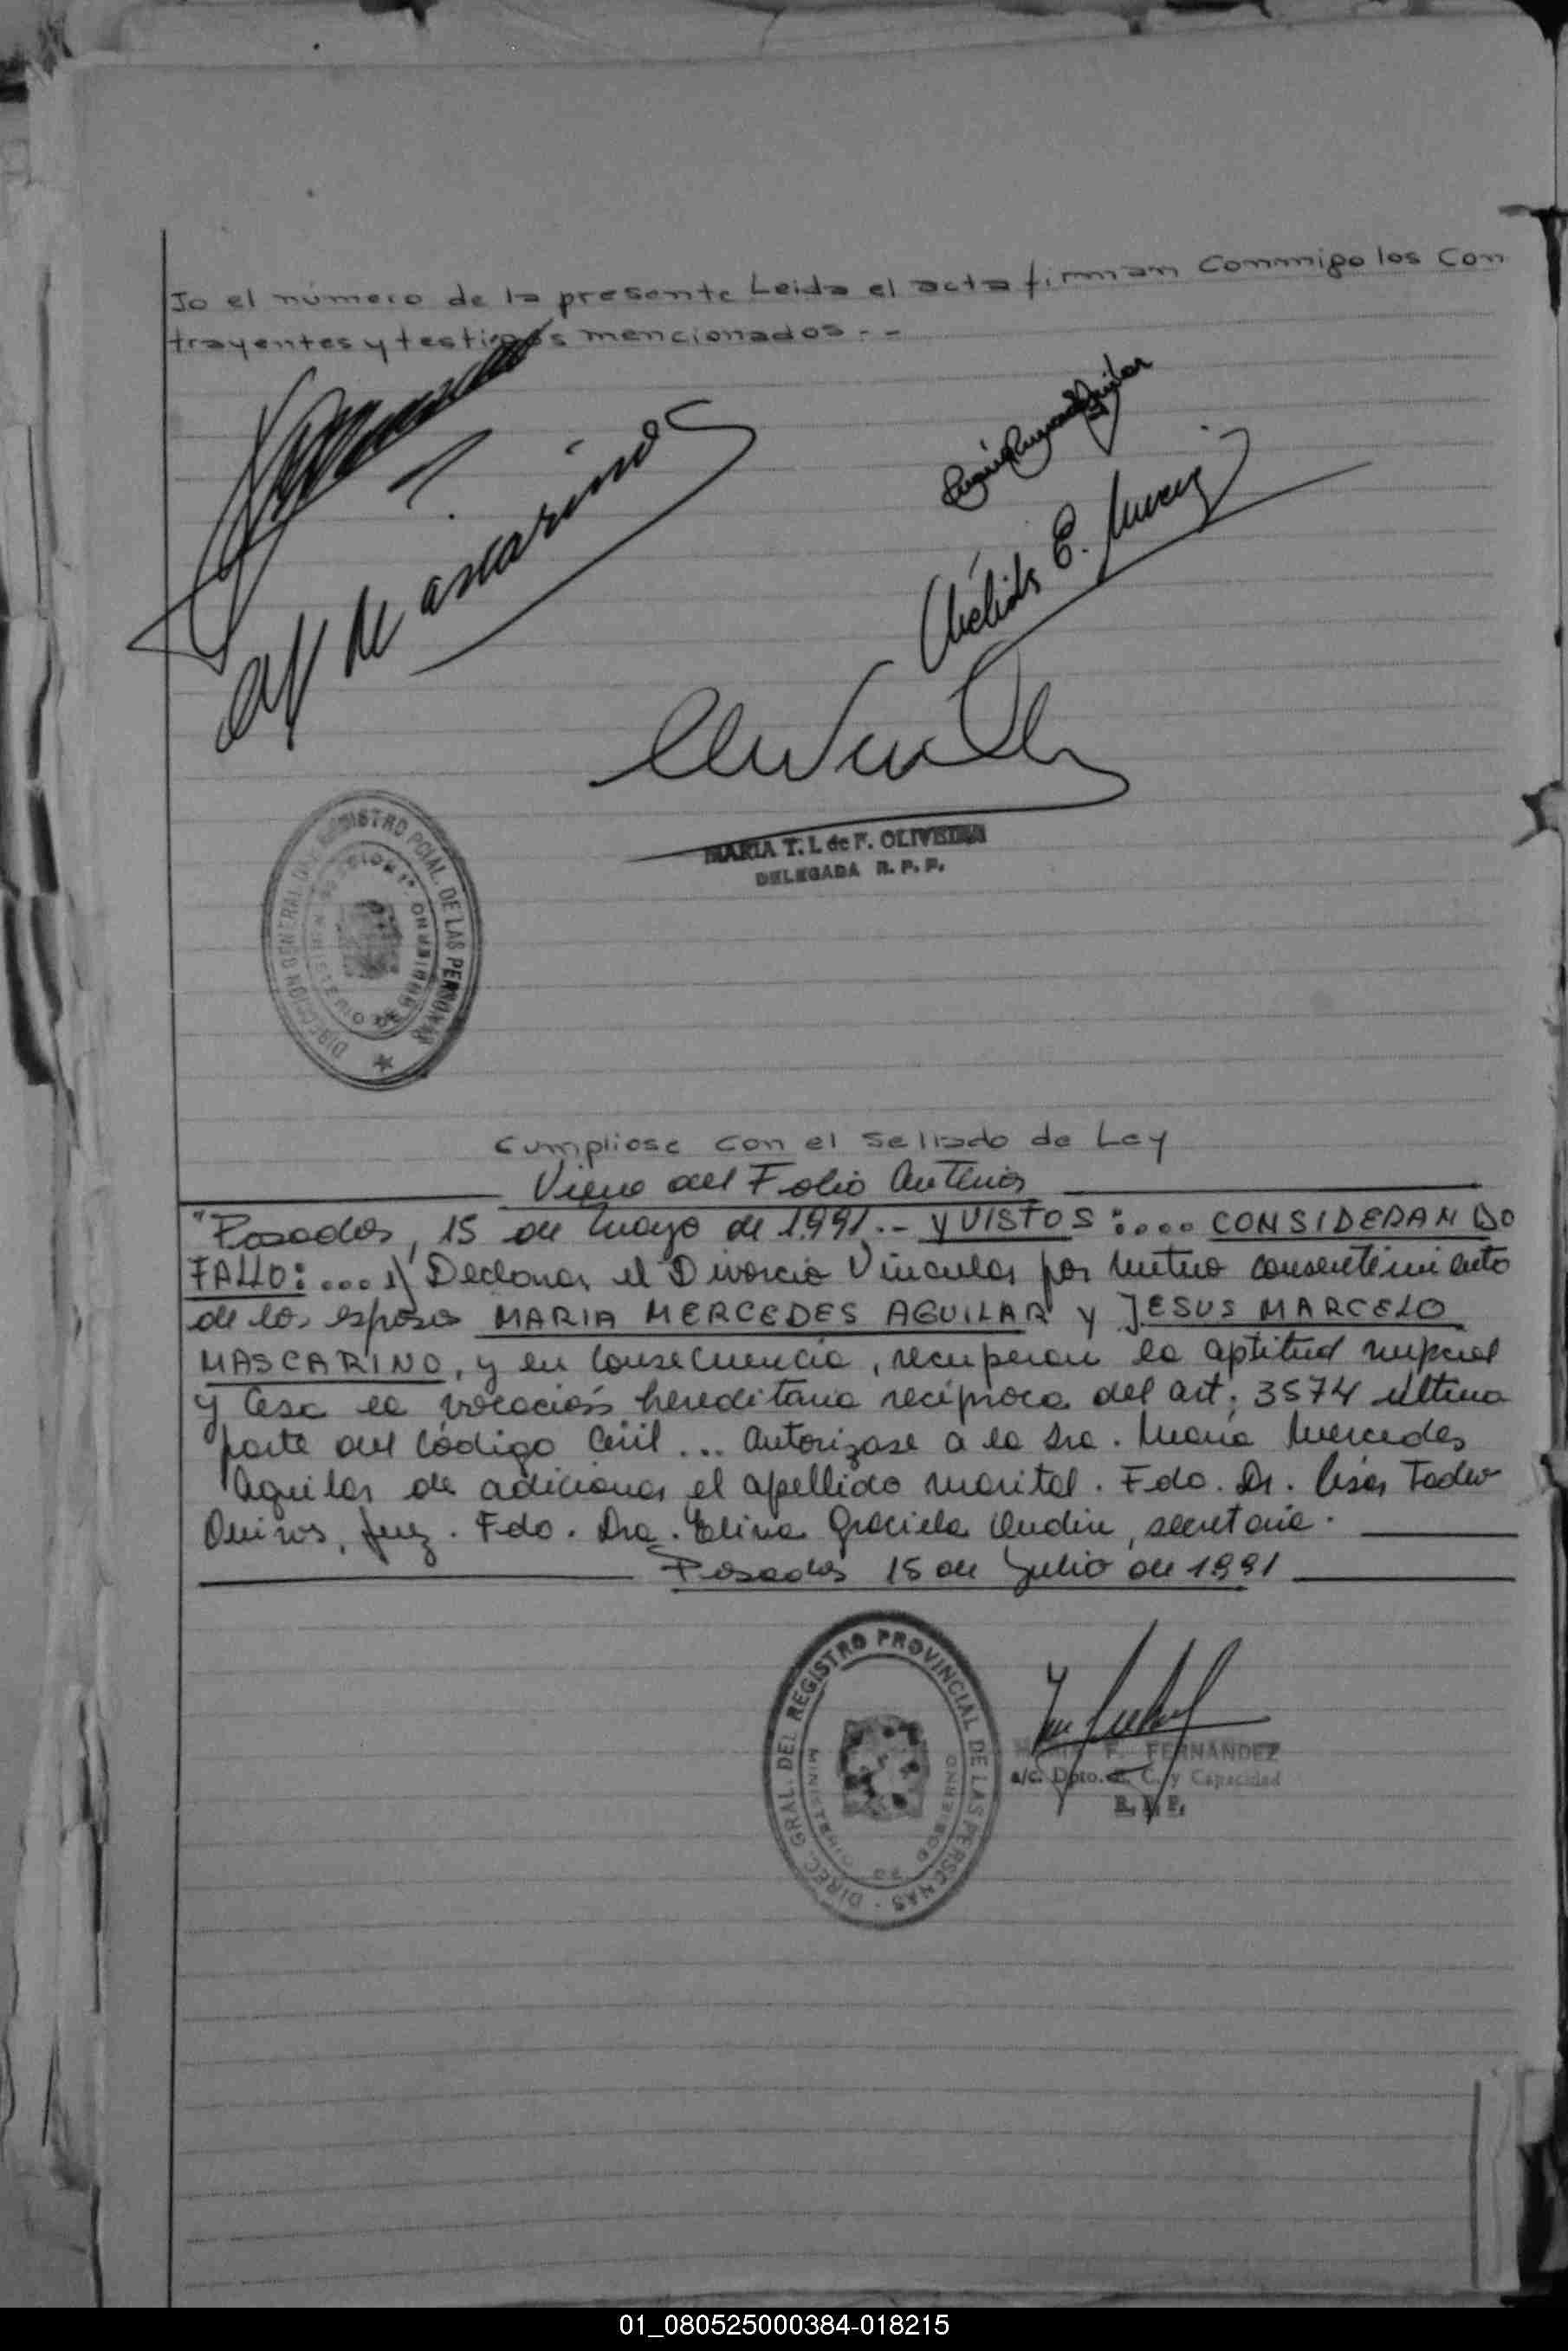 Jo el número de la presente Leida el acta firman Conmigo los Con
trayentes y testigos mencionados. - -
Mascarino
Nélida E.
MARIA T. I. de F. OLIVEIRA
DELEGADA R. P. P.
DIRECCION GENERAL DEL REGISTRO PCIAL. DE LAS PERSONAS
MINISTERIO DE GOBIERNO
Cumpliose con el Sellado de Ley
Viene del Folio Anterior
"Posadas, 15 de Mayo de 1991.- Y VISTOS:.... CONSIDERANDO
FALLO:... 1) Declarar el Divorcio Vincular por mutuo consentimiento
de los esposos MARIA MERCEDES AGUILAR y JESUS MARCELO
MASCARINO, y en consecuencia, recuperan la aptitud nupcial
y Cesa la vocación hereditaria recíproca del art. 3574 última
parte del Código Civil... Autorizase a la Sra. María Mercedes
Aguilar de adicionar el apellido marital. Fdo. Dr. César Tadeo
Quiros, Juez. Fdo. Dra. Elina Graciela, secretaria.
Posadas 15 de Julio de 1991
DIREC. GRAL. DEL REGISTRO PROVINCIAL DE LAS PERSONAS
MINISTERIO DE GOBIERNO
F. FERNANDEZ
a/c. Dpto. E. C. y Capacidad
R. P. P.
01_080525000384-018215